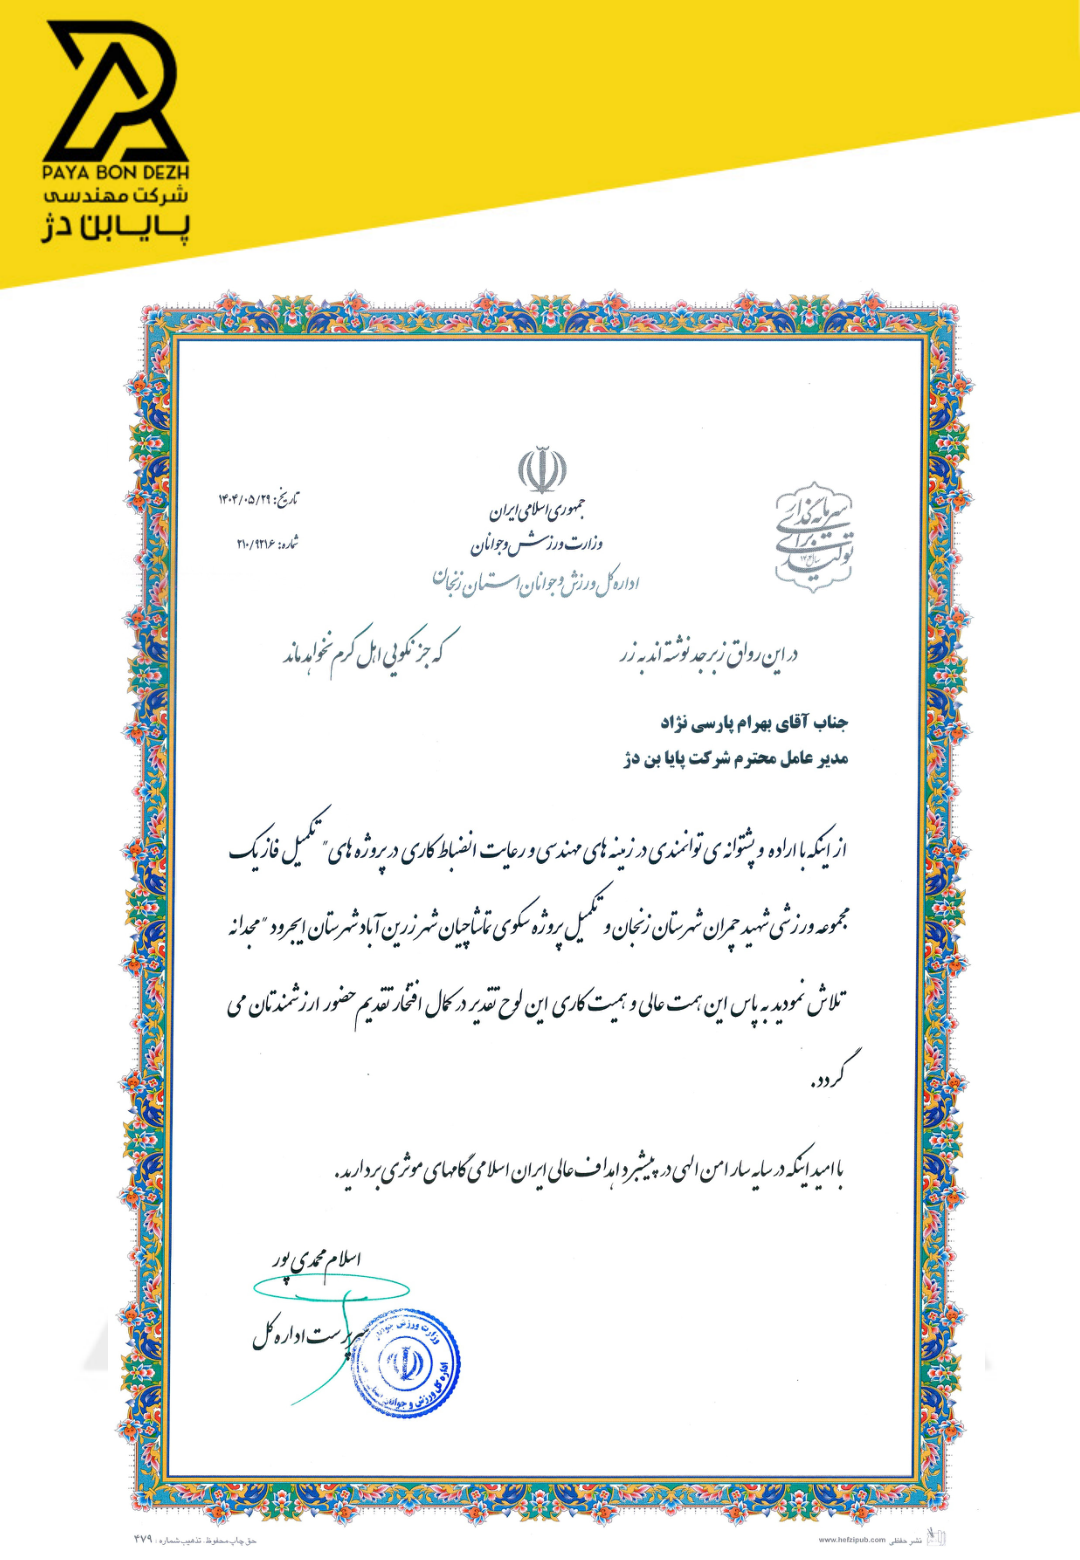 PAYA BON DEZH
شرکت مهندسی
پایابن دژ
جمهوری اسلامی ایران
وزارت ورزش و جوانان
اداره کل ورزش و جوانان استان زنجان
تاریخ: ۱۴۰۴/۰۵/۲۹
شماره: ۲۱۰/۹۲۱۶
سرمایه‌گذاری
برای
تولید
سال ۱۴۰۴
در این رواق زبرجد نوشته اند به زر که جز نکویی اهل کرم نخواهد ماند
جناب آقای بهرام پارسی نژاد
مدیر عامل محترم شرکت پایا بن دژ
از اینکه با اراده و پشتوانه ی توانمندی در زمینه های مهندسی و رعایت انضباط کاری در پروژه های " تکمیل فاز یک
مجموعه ورزشی شهید چمران شهرستان زنجان و تکمیل پروژه سکوی تماشاچیان شهر زرین آباد شهرستان ایجرود " مجدانه
تلاش نمودید به پاس این همت عالی و همیت کاری این لوح تقدیر در کمال افتخار تقدیم حضور ارزشمندتان می
گردد.
با امید اینکه در سایه سار امن الهی در پیشبرد اهداف عالی ایران اسلامی گامهای موثری بردارید.
اسلام محمدی پور
سرپرست اداره کل
وزارت ورزش و جوانان
اداره کل ورزش و جوانان
حق چاپ محفوظ. تذهیب شماره: ۴۷۹
www.hefzipub.com نشر حفظی